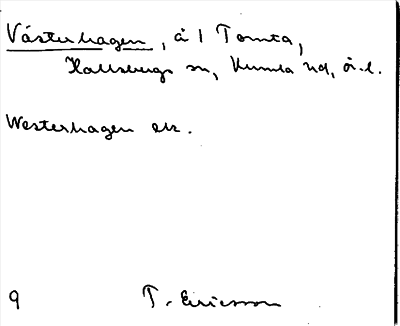 Västerhagen, å 1 Tomta,
Hallsbergs sn, Kumla hd, ör. l.
Westerhagen ek.
9 T. Ericsson